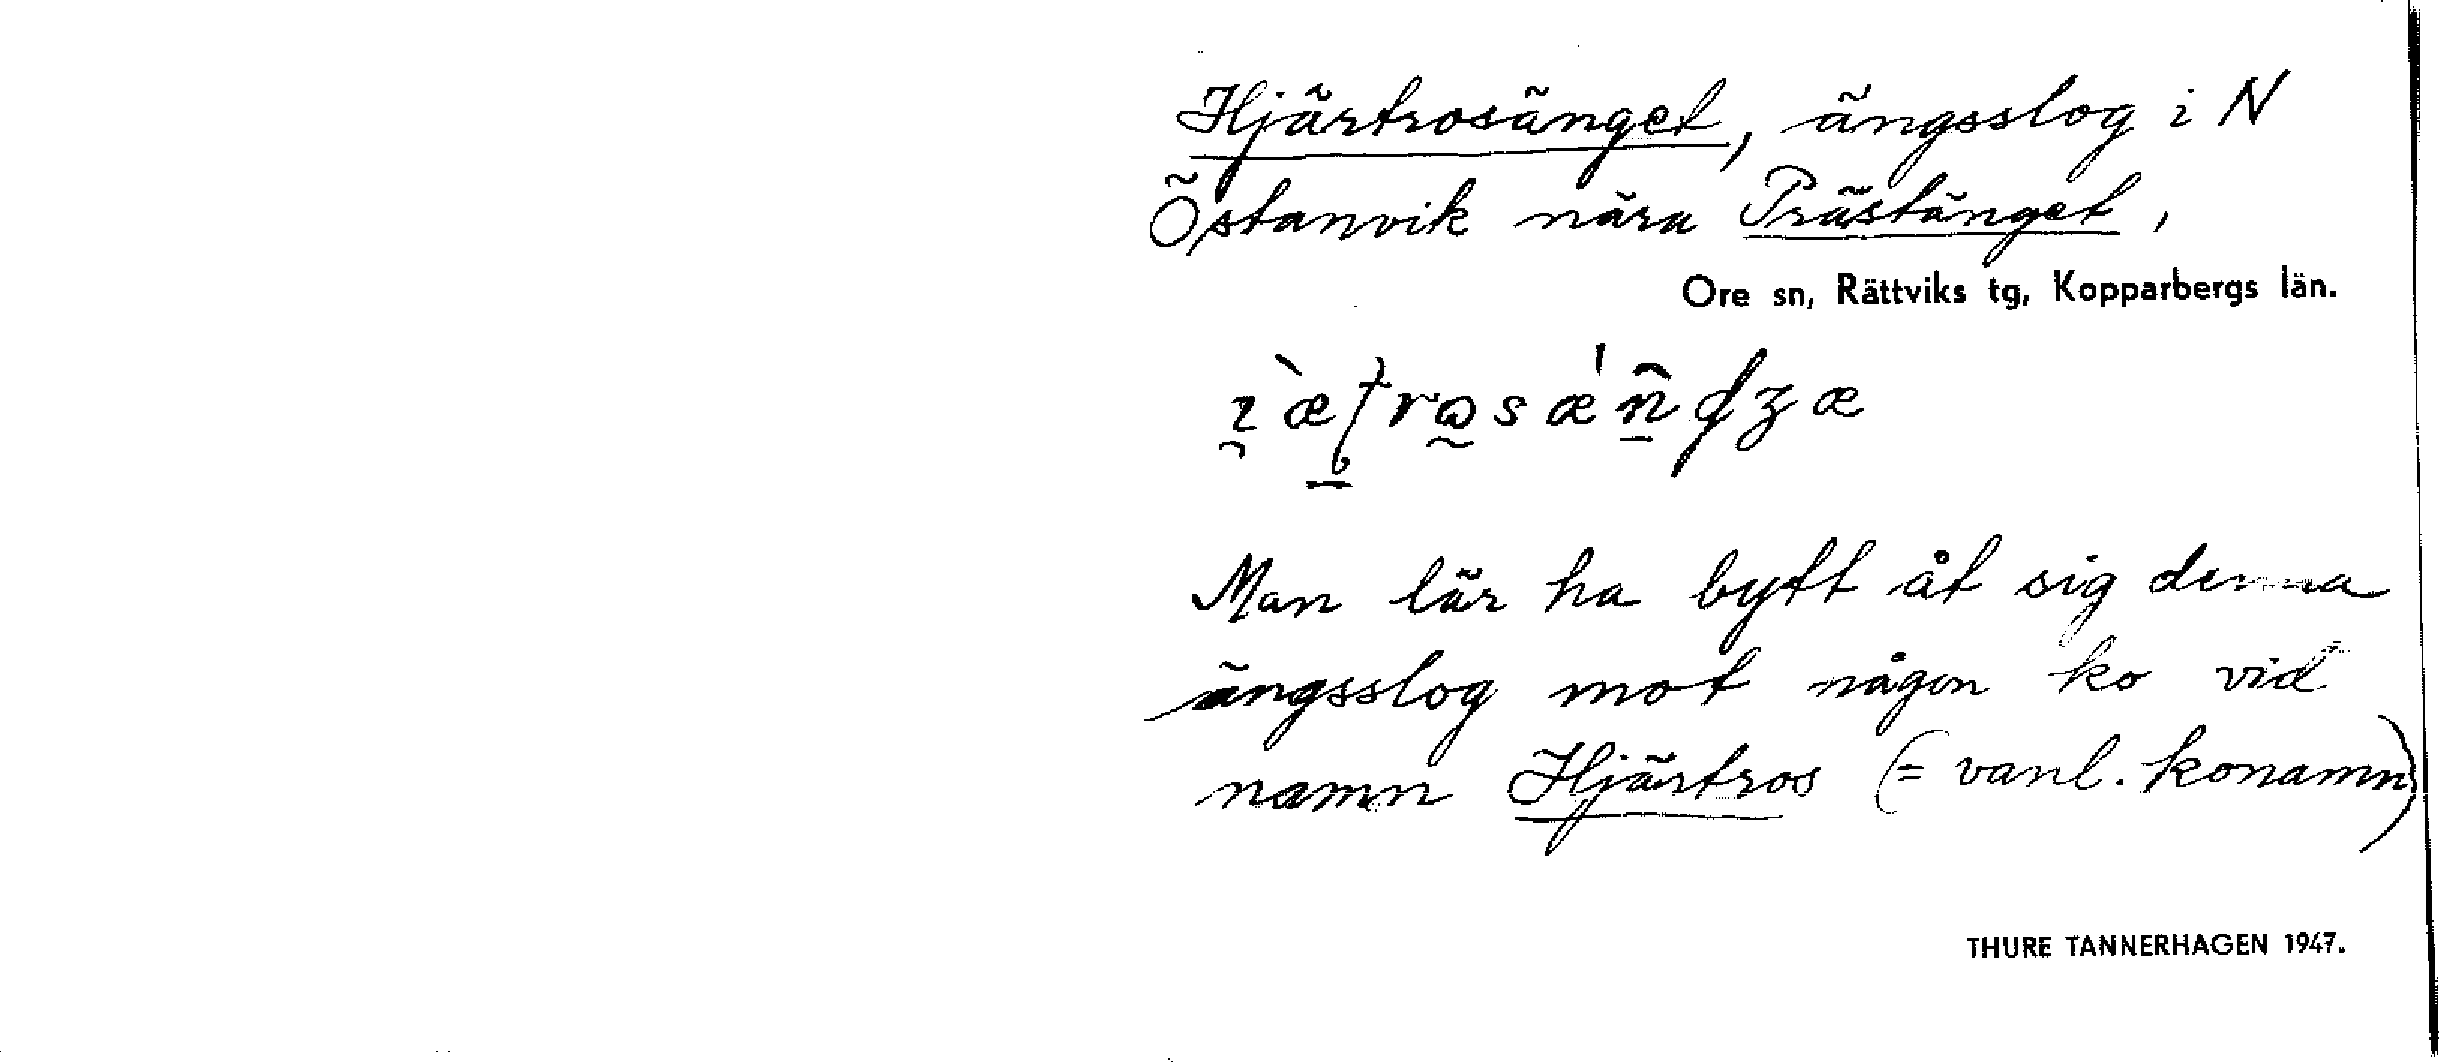 Hjärtrosänget, ängsslog i N
Östanvik nära Prästänget,
Ore sn, Rättviks tg, Kopparbergs län.
Man lär ha bytt åt sig denna
ängsslog mot någon ko vid
namn Hjärtros (= vanl. konamn)
THURE TANNERHAGEN 1947.